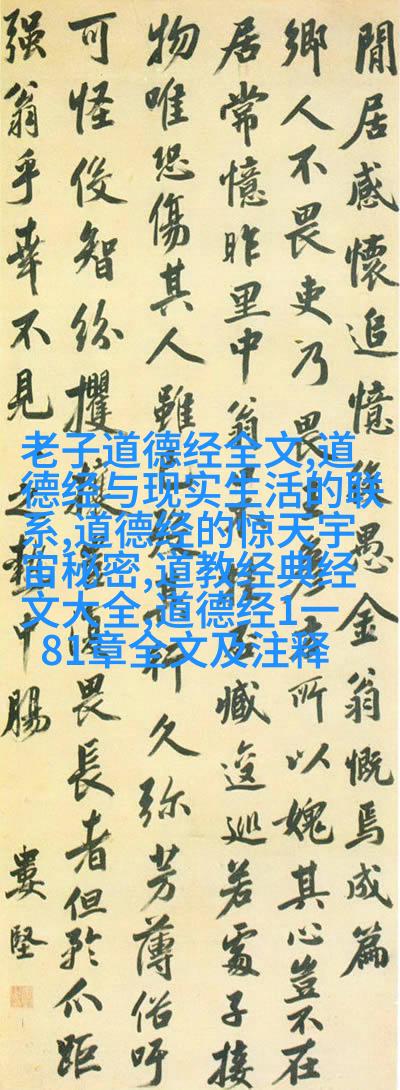 閒居感懷追憶愚金翁慨焉成篇
鄉人不畏吏乃畏所以媿其心豈不在
居常憶昨里中翁臧逡巡若處子接
物唯恐傷其人雖久弥芳薄俗吁
可怪佼智紛攫畏長者但矜爪距
强翁乎幸不見中腸
婁堅
老子道德经全文,道
德经与现实生活的联
系,道德经的惊天宇
宙秘密,道教经典经
文大全,道德经1一
81章全文及注释